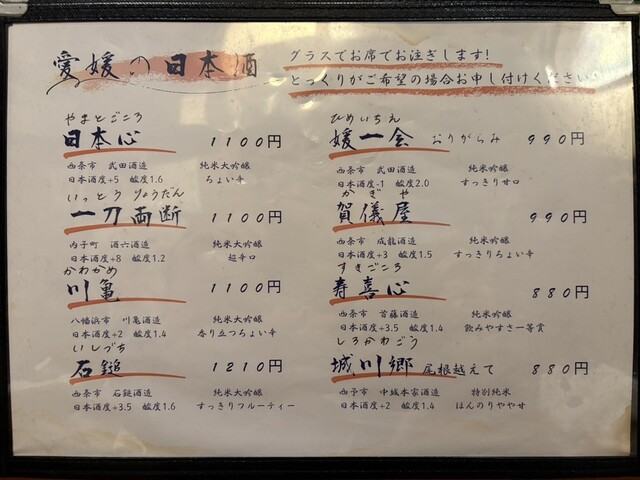 愛媛の日本酒
グラスでお席でお注ぎします!
とっくりがご希望の場合お申し付けください!
やまとごころ
日本心 1100円
西条市 武田酒造 純米大吟醸
日本酒度+5 酸度1.6 ちょい辛
いっとうりょうだん
一刀両断 1100円
内子町 酒六酒造 純米大吟醸
日本酒度+8 酸度1.2 超辛口
かわかめ
川亀 1100円
八幡浜市 川亀酒造 純米大吟醸
日本酒度+2 酸度1.4 香り立つちょい辛
いしづち
石鎚 1210円
西条市 石鎚酒造 純米大吟醸
日本酒度+3.5 酸度1.6 すっきりフルーティー
ひめいちえ
媛一会 おりがらみ 990円
西条市 武田酒造 純米吟醸
日本酒度-1 酸度2.0 すっきり甘口
かぎや
賀儀屋 990円
西条市 成龍酒造 純米吟醸
日本酒度+3 酸度1.5 すっきりちょい辛
すきごころ
寿喜心 880円
西条市 首藤酒造 純米吟醸
日本酒度+3.5 酸度1.4 飲みやすさ一等賞
しろかわごう
城川郷 尾根越えて 880円
西予市 中城本家酒造 特別純米
日本酒度+2 酸度1.4 ほんのりやや甘